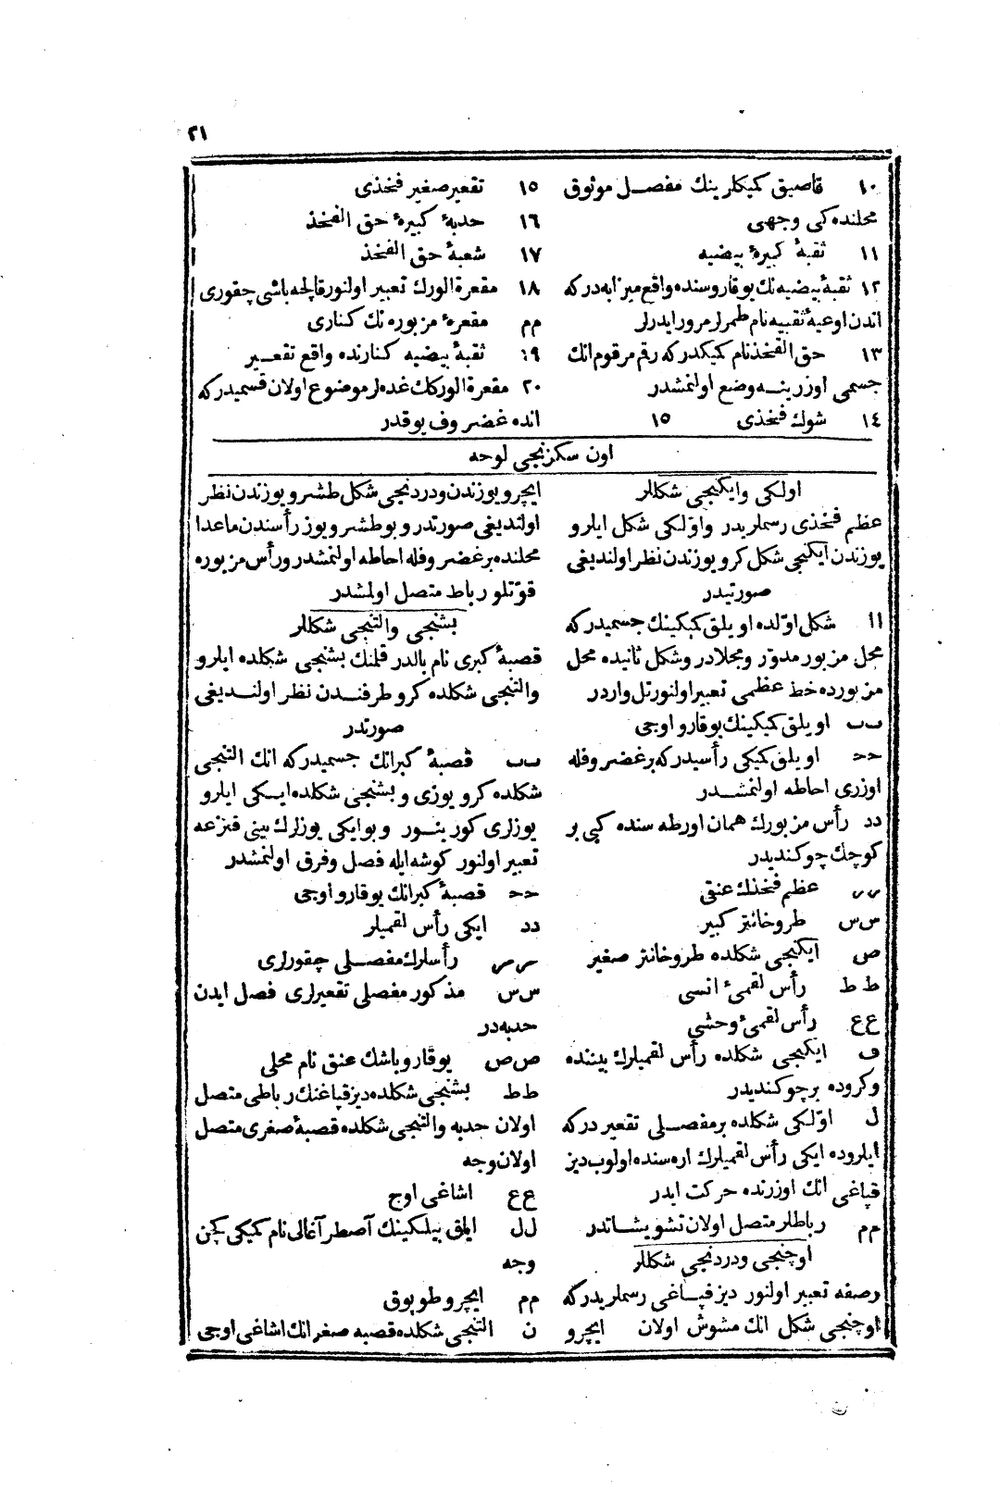 ٢١
١٠ قاصیق کمیکلرینك مفصـل موثوق
محلنده کی وجهی
١١ ثقبهٔ کبیرهٔ بیضیه
١٢ ثقبهٔ بیضیه نك یوقاروسنده واقع میزابه در که
اندن اوعیهٔ ثقبیه نام طمرلر مرور ایدرلر
١٣ حق الفخذ نام کمیکدر که رقم مرقوم انك
جسمی اوزرینـه وضع اولنمشدر
١٤ شوك فخذی ١٥
١٥ تقعیر صغیر فخذی
١٦ حدبهٔ کبیرهٔ حق الفخذ
١٧ شعبهٔ حق الفخذ
١٨ مقعرة الورك تعبیر اولنور قالچه باشی چقوری
م م مقعرهٔ مزبوره نك کناری
١٩ ثقبهٔ بیضیه کنارنده واقع تقعـیر
٢٠ مقعرة الورکك غده لر موضوع اولان قسمیدر که
انده غضروف یوقدر
اون سکزنجی لوحه
اولکی وایکنجی شکللر
عظم فخذی رسملریدر واوّلکی شکل ایلرو
یوزندن ایکنجی شکل کرو یوزندن نظر اولندیغی
صورتیدر
ا ا شکل اوّلده اویلق کمیکینك جسمیدر که
محل مزبور مدوّر ومجلادر وشکل ثانیده محل
مزبورده خط عظمی تعبیر اولنور تل واردر
ب ب اویلق کمیکینك یوقارو اوجی
ح ح اویلق کمیکی رأسیدر که بر غضروفله
اوزری احاطه اولنمشـدر
د د رأس مزبورك همان اورطه سنده کبی بر
کوچك چوکندیدر
ر ر عظم فخذك عنقی
س س طروخانتر کبیر
ص ایکنجی شکلده طروخانتر صغیر
ط ط رأس لقمیٔ انسی
ع ع رأس لقمیٔ وحشی
ف ایکنجی شکلده رأس لقمیلرك بیننده
وکروده بر چوکندیدر
ل اوّلکی شکلده بر مفصـلی تقعیر در که
ایلروده ایکی رأس لقمیلرك اره سنده اولوب دیز
قپاغی انك اوزرنده حرکت ایدر
م م رباطلر متصل اولان تشویشـاتدر
اوچنجی ودردنجی شکللر
رصفه تعبیر اولنور دیز قپـاغی رسملریدر که
اوچنجی شکل انك مشوش اولان ایچرو
ایچرو یوزندن ودردنجی شکل طشرو یوزندن نظر
اولندیغی صورتدر وبو طشرو یوز رأسندن ماعدا
محلنده بر غضروفله احاطه اولنمشدر ورأس مزبوره
قوّتلو رباط متصل اولمشدر
بشنجی والتنجی شکللر
قصبهٔ کبری نام بالدر قلمنك بشنجی شکلده ایلرو
والتنجی شکلده کرو طرفنـدن نظر اولنـدیغی
صورتدر
ب ب قصبهٔ کبرانك جسمیدر که انك التنجی
شکلده کرو یوزی وبشنجی شکلده ایـکی ایلرو
یوزلری کورینـور وبو ایکی یوزلرك بینی قنزعه
تعبیر اولنور کوشه ایله فصل وفرق اولنمشدر
ح ح قصبهٔ کبرانك یوقارو اوجی
د د ایکی رأس لقمیلر
ر ر رأسلرك مفصـلی چقورلری
س س مذکور مفصلی تقعیرلری فصل ایدن
حدبه در
ص ص یوقارو باشك عنق نام محلی
ط ط بشنجی شکلده دیز قپاغنك رباطی متصل
اولان حدبه والتنجی شکلده قصبهٔ صغری متصل
اولان وجه
ع ع اشاغی اوج
ل ل ایلق بیلکینك آصطراغالی نام کمیکی کچن
وجه
م م ایچرو طوپوق
ن التنجی شکلده قصبه صغرانك اشاغی اوجی